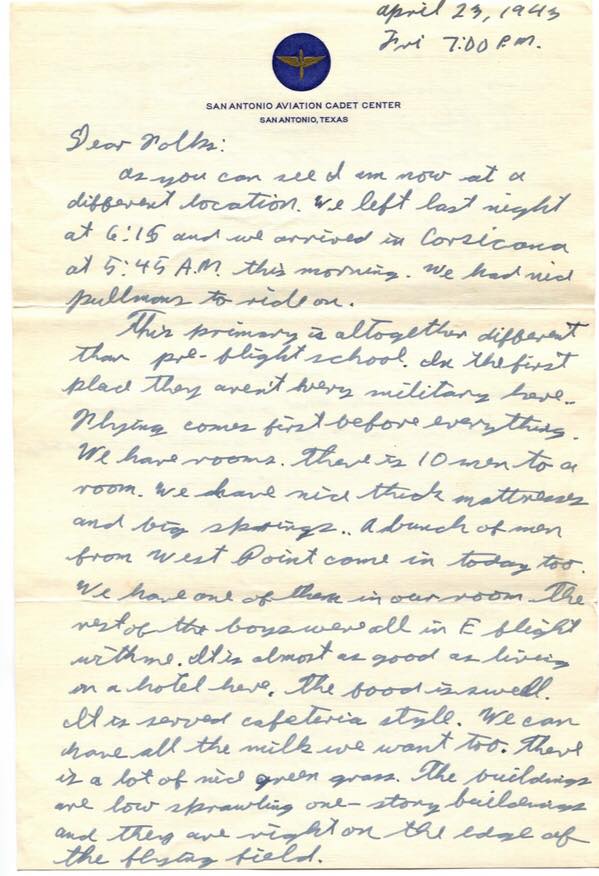 April 23, 1943
Fri 7:00 P.M.
SAN ANTONIO AVIATION CADET CENTER
SAN ANTONIO, TEXAS
Dear Folks:
As you can see I am now at a
different location. We left last night
at 6:15 and we arrived in Corsicana
at 5:45 A.M. this morning. We had nice
pullmans to ride on.
This primary is altogether different
than pre-flight school. In the first
place they aren't very military here..
Flying comes first before everything.
We have rooms. There is 10 men to a
room. We have nice thick mattresses
and big springs.. A bunch of men
from West Point come in today too.
We have one of them in our room. The
rest of the boys were all in E flight
with me. It is almost as good as living
in a hotel here. The food is swell.
It is served cafeteria style. We can
have all the milk we want too. There
is a lot of nice green grass. The buildings
are low sprawling one-story buildings
and they are right on the edge of
the flying field.